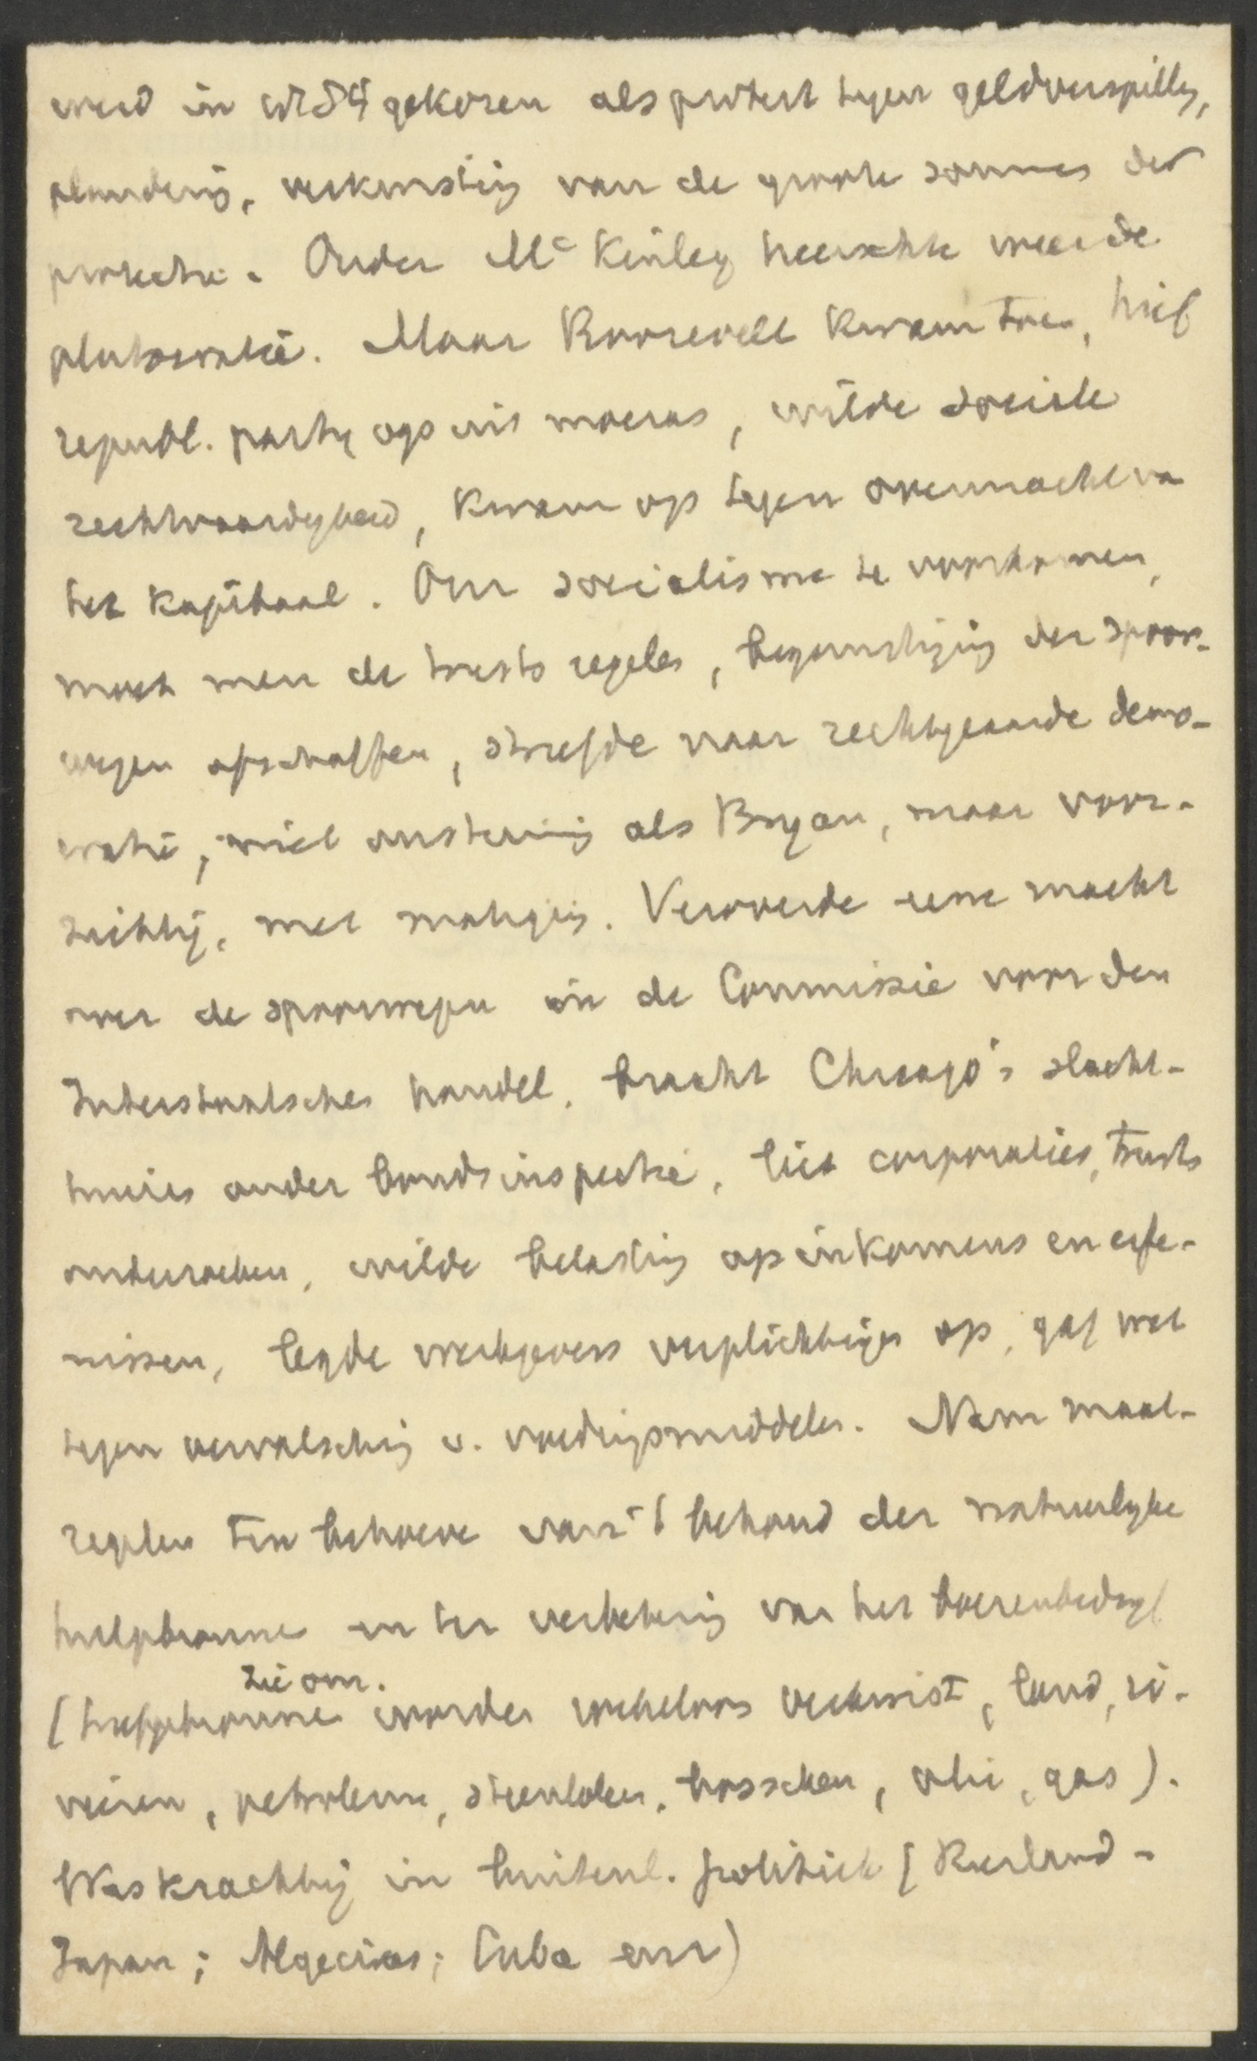 werd in 1884 gekozen als protest tegen geldverspilling,
plundering, verkwisting van de groote sommen der
protectie. Onder McKinley heerschte weer de
plutocratie. Maar Roosevelt kwam toen, hief
republ. party op uit moeras, wilde sociale
rechtvaardigheid, kwam op tegen overmacht van
het kapitaal. Om socialisme te voorkomen,
moet men de trusts regelen, begunstiging der spoor-
wegen afschaffen, streefde naar rechtgeaarde demo-
cratie, niet onstuimig als Bryan, maar voor-
zichtig, met matiging. Veroverde eene macht
over de spoorwegen in de Commissie voor den
Interstaatschen handel, bracht Chicago's slacht-
huizen onder bondsinspectie, liet corporaties, trusts
onderzoeken, wilde belasting op inkomens en erfe-
nissen, legde werkgevers verplichtingen op, gaf wet
tegen vervalsching v. voedingsmiddelen. Nam maat-
regelen ten behoeve van 't behoud der natuurlyke
hulpbronnen en ter verbetering van het boerenbedryf
zie om.
(hulpbronnen worden roekeloos verkwist, land, ri-
vieren, petroleum, steenkolen, bosschen, olie, gas).
Was krachtig in buitenl. politiek (Rusland-
Japan; Algeciras; Cuba enz)